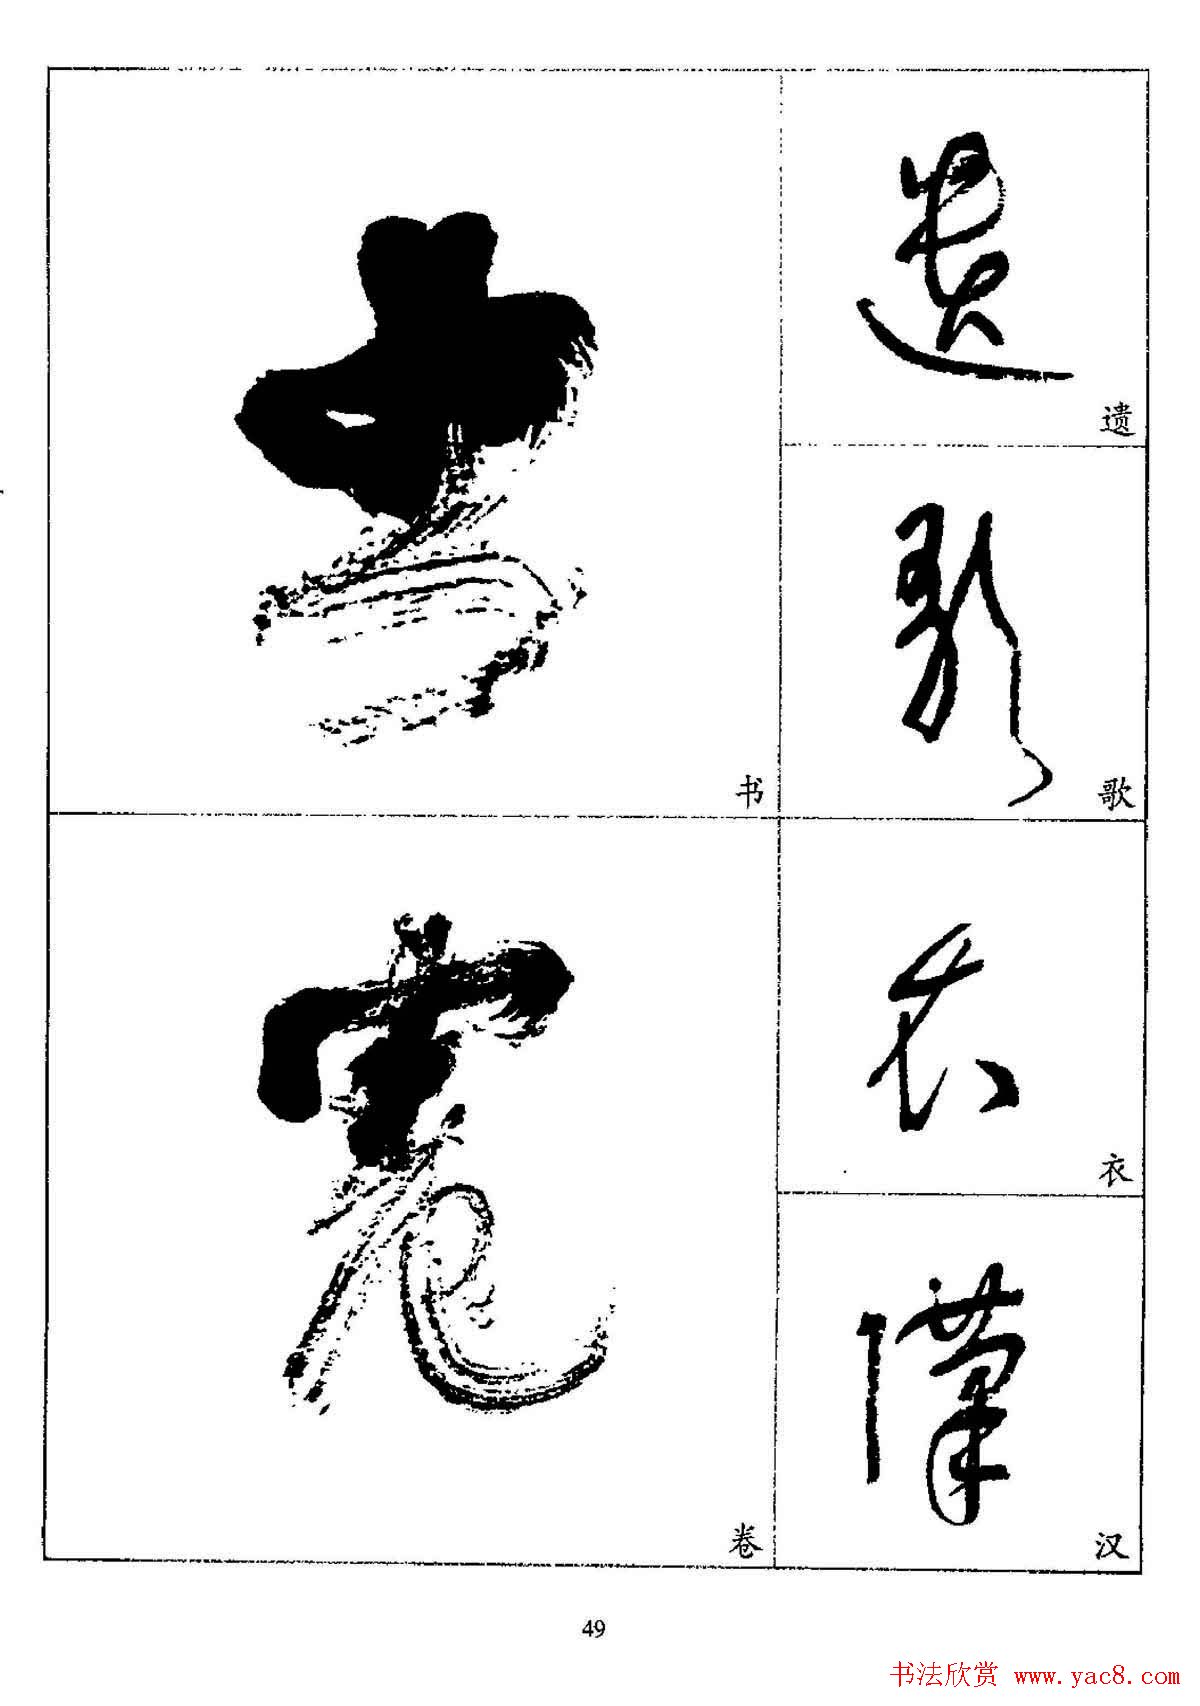 遗
歌
书
衣
汉
卷
49
书法欣赏 www.yac8.com